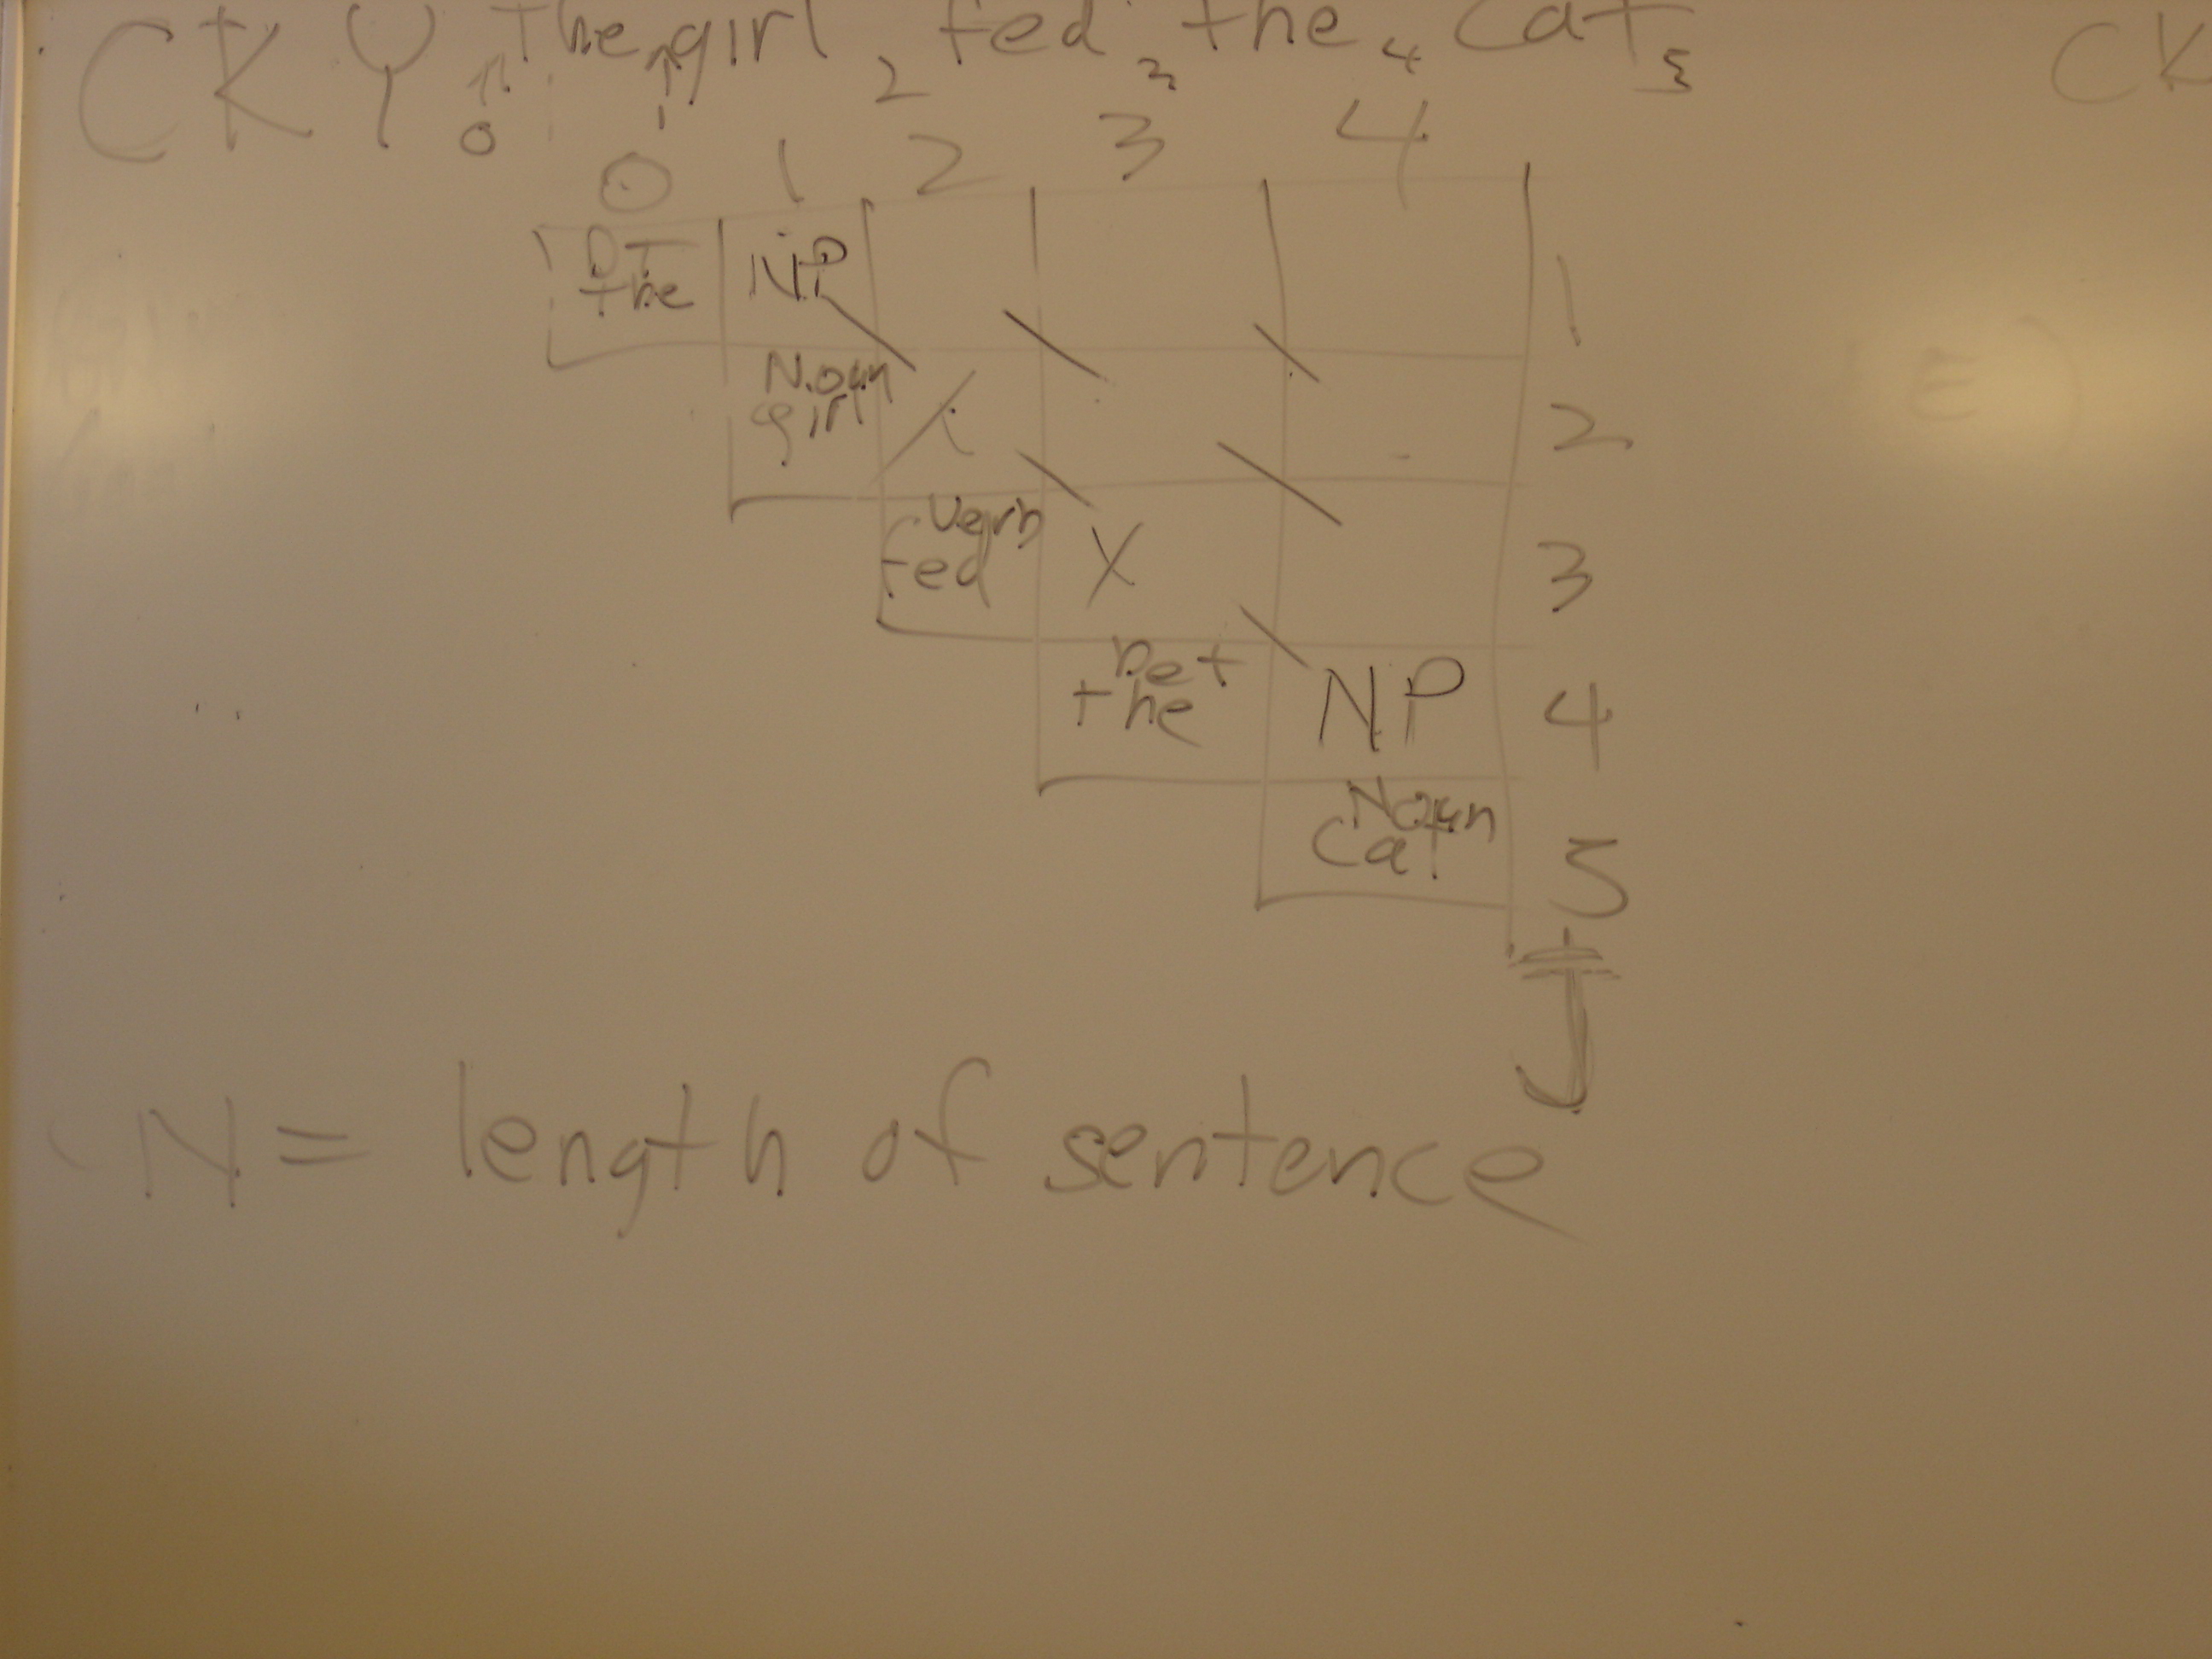 CKY 0 The 1 girl 2 fed 3 the 4 cat 5
CK
0 1
0 1 2 3 4
DT NP
the 1
Noun
girl 2
Verb X
fed 3
Det NP
the 4
Noun
cat 5
J
N = length of sentence